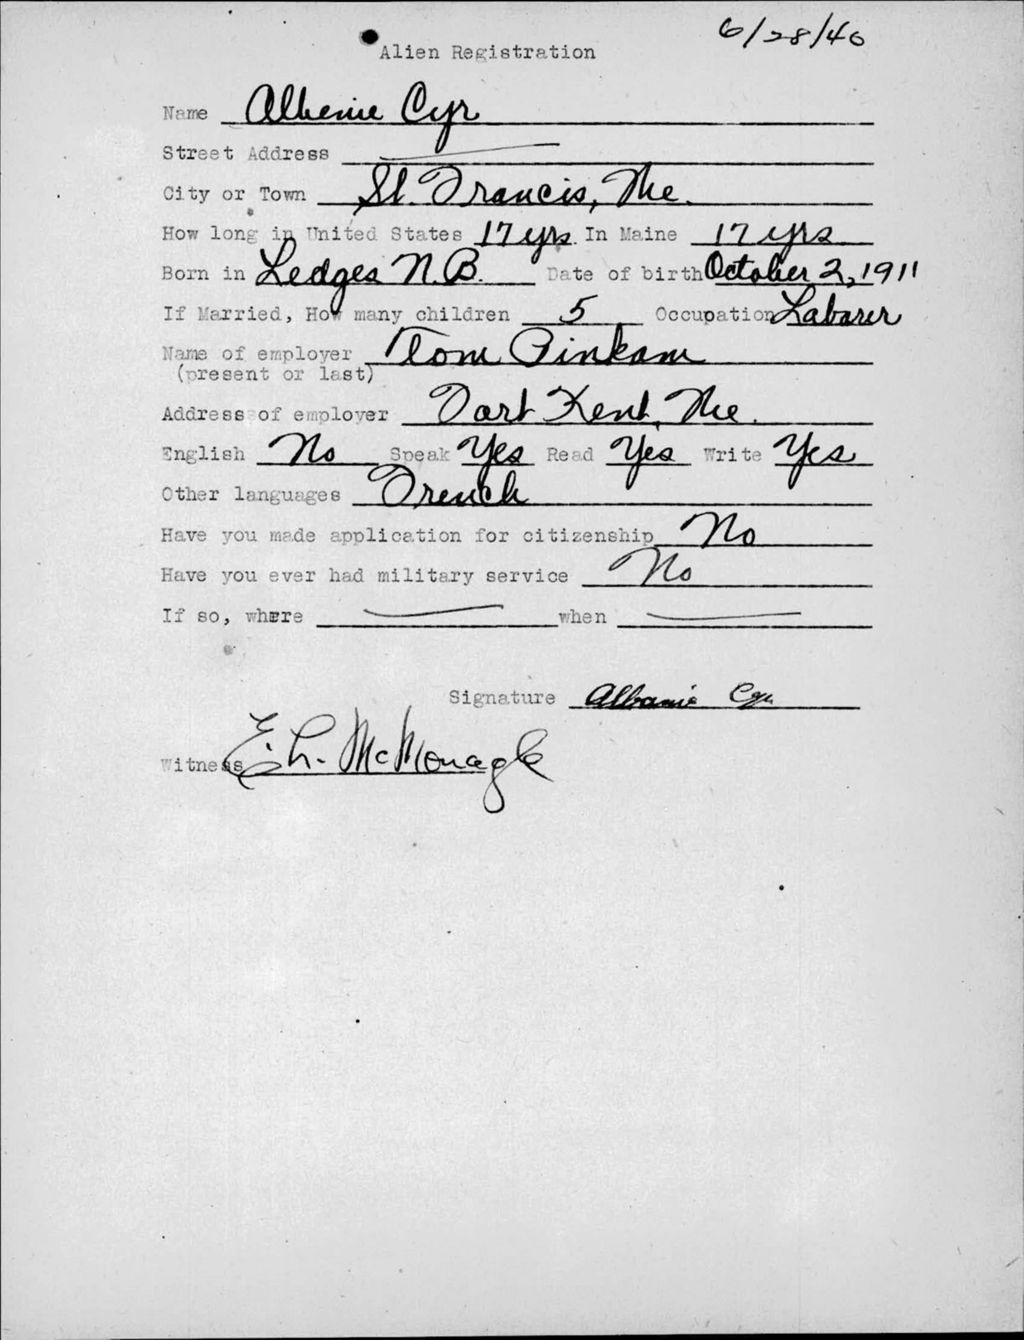 6/28/40
Alien Registration
Name Albenie Cyr
Street Address
City or Town St. Francis, Me.
How long in United States 17 yrs. In Maine 17 yrs
Born in Ledges N.B. Date of birth October 2, 1911
If Married, How many children 5 Occupation Labarer
Name of employer Tom Pinkam
(present or last)
Address of employer Fort Kent, Me.
English No Speak Yes Read Yes Write Yes
Other languages French
Have you made application for citizenship No
Have you ever had military service No
If so, where when
Signature Albanie Cyr
Witness E. L. McMonagle